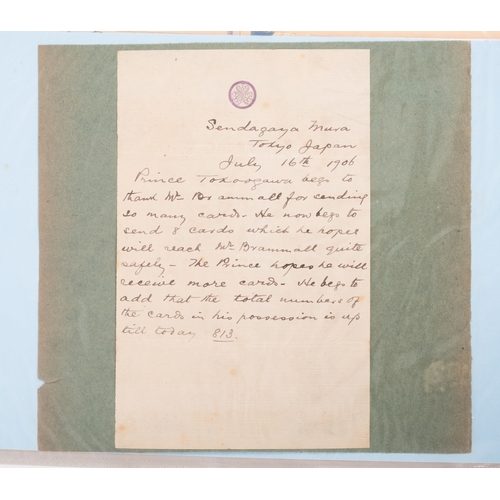 Sendagaya Mura
Tokyo Japan
July 16th 1906
Prince Tokoogawa begs to
thank Mr Brammall for sending
so many cards. He now begs to
send 8 cards which he ropes
will reach Mr Brammall quite
safely - The Prince hopes he will
receive more cards - He begs to
add that the total numbers of
the cards in his possession is up
till today 813.